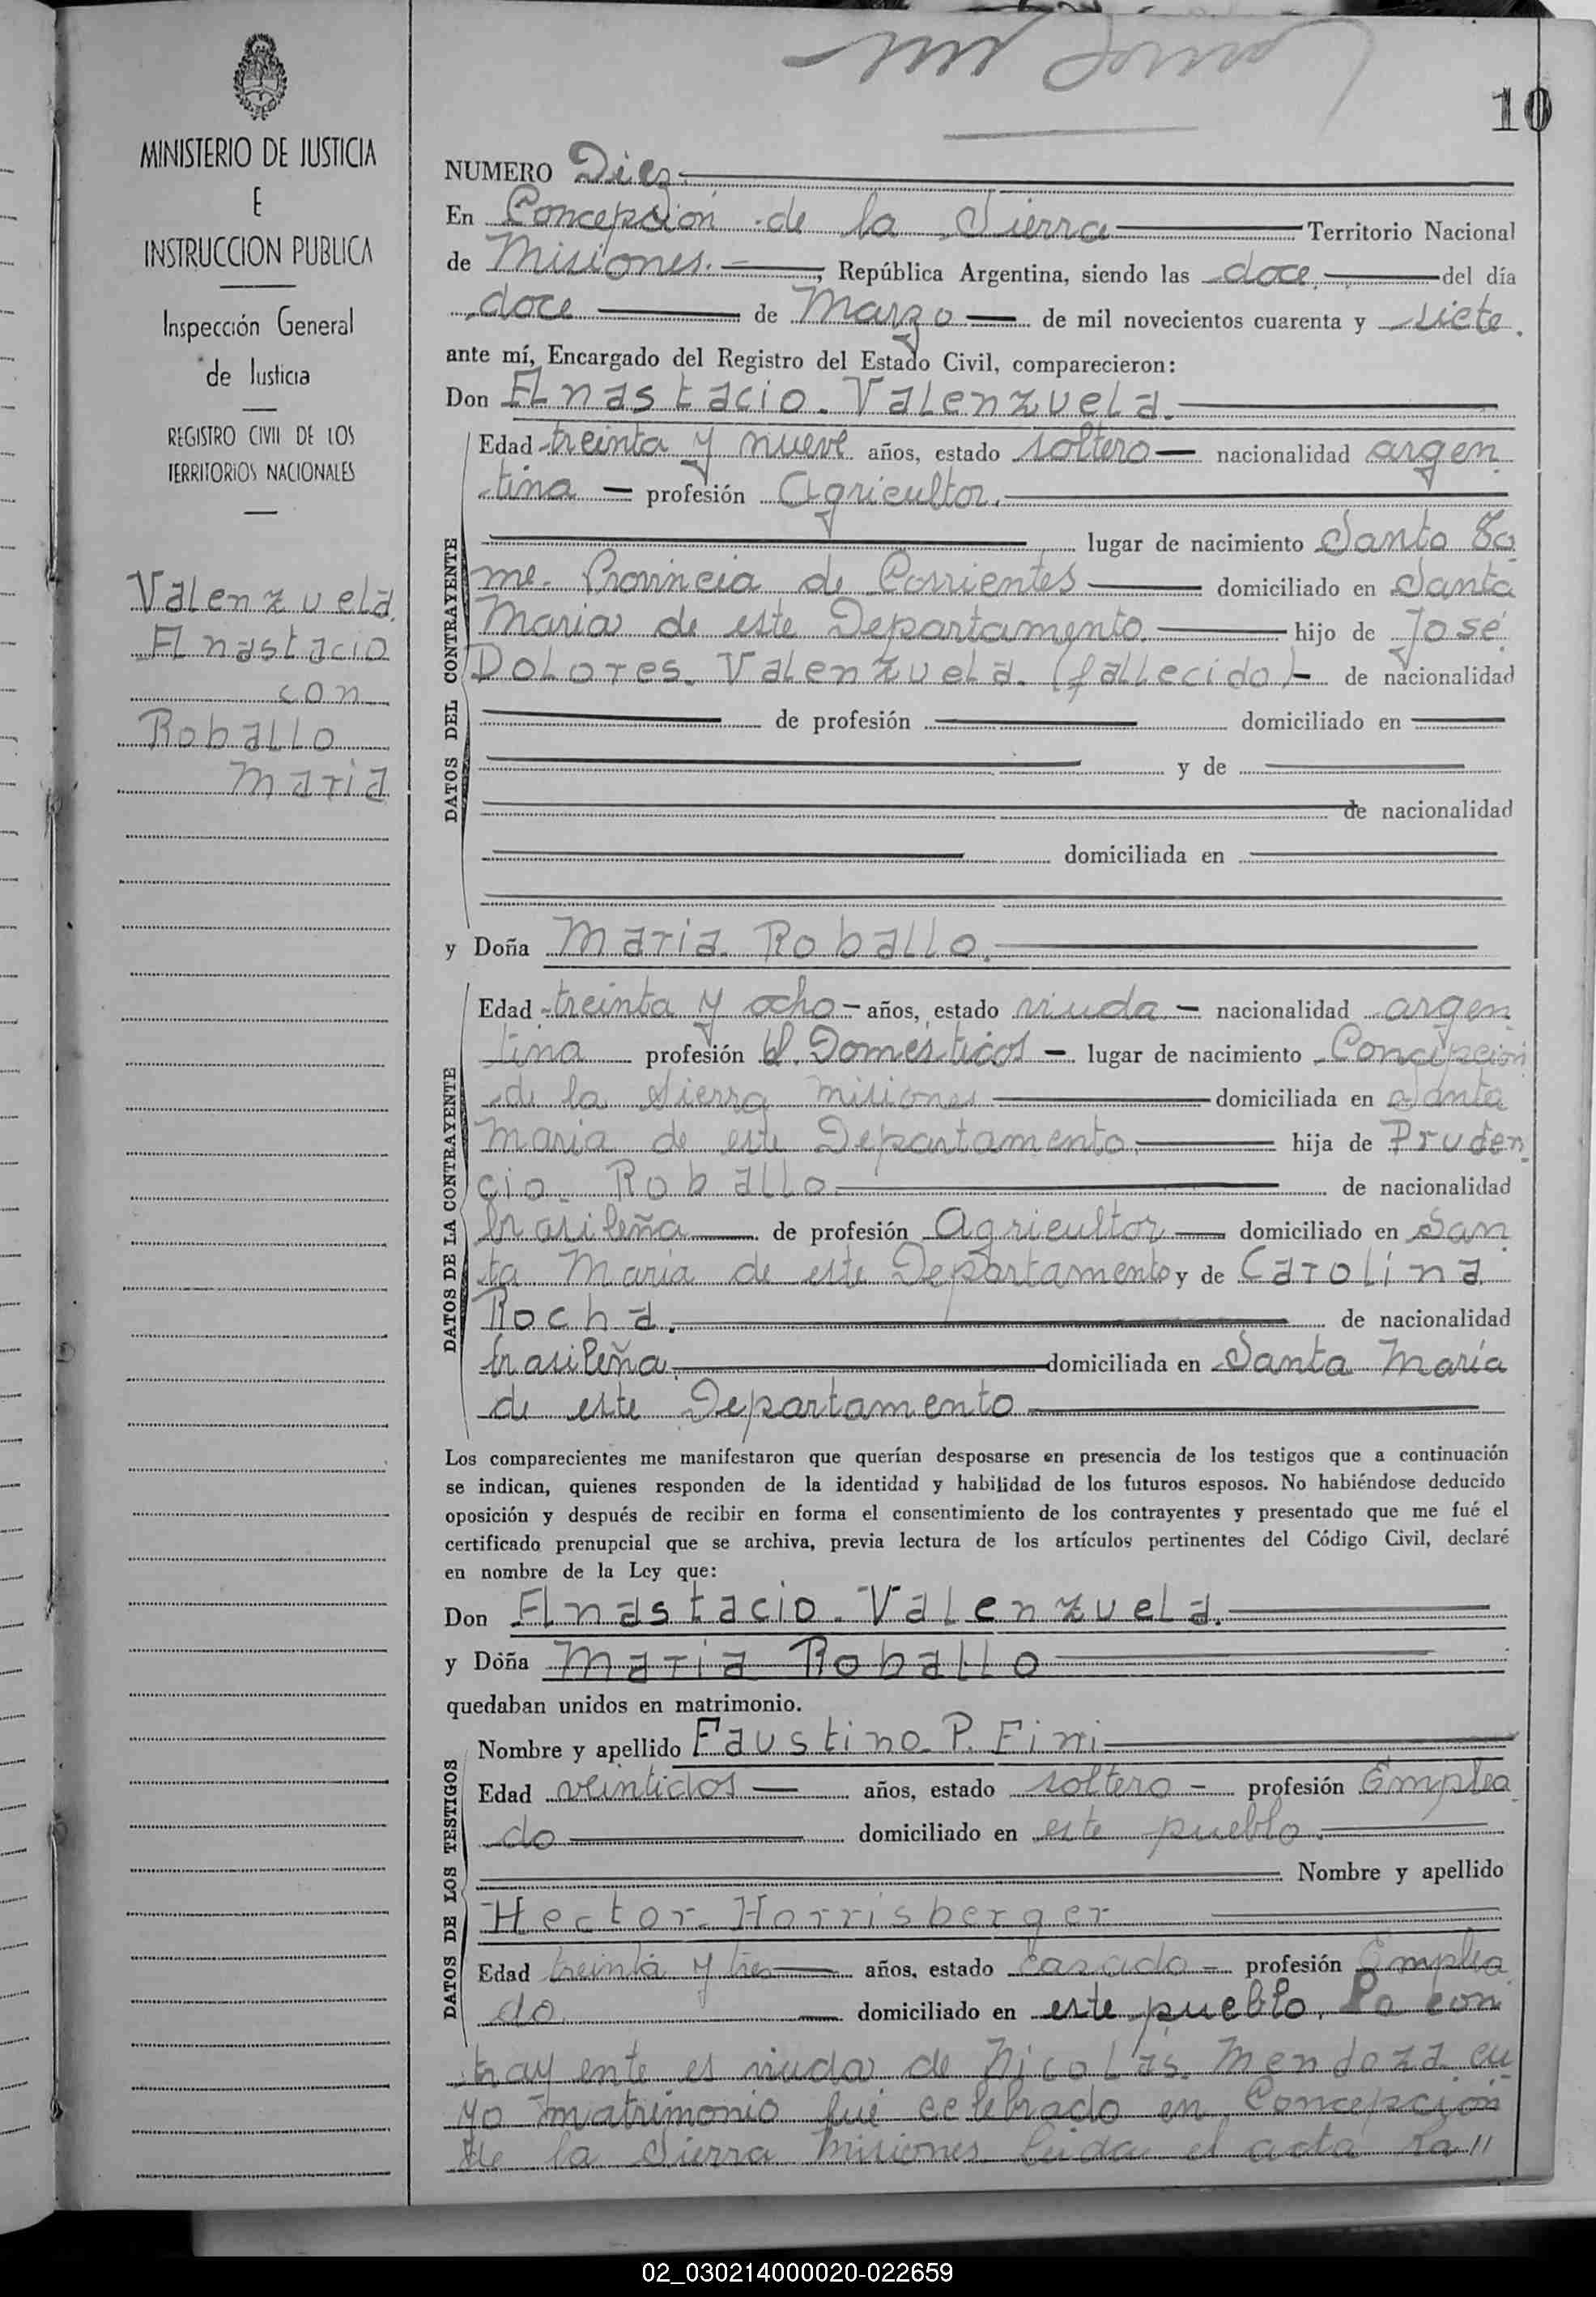 10
MINISTERIO DE JUSTICIA
E
INSTRUCCION PUBLICA
Inspección General
de Justicia
REGISTRO CIVIL DE LOS
TERRITORIOS NACIONALES
Valenzuela.
Anastacio
con
Roballo
Maria
NUMERO Diez.
En Concepción de la Sierra Territorio Nacional
de Misiones. , República Argentina, siendo las doce. del día
doce de Marzo de mil novecientos cuarenta y siete.
ante mí, Encargado del Registro del Estado Civil, comparecieron:
Don Anastacio. Valenzuela.
DATOS DEL CONTRAYENTE
Edad treinta y nueve años, estado soltero nacionalidad argen
tina profesión Agricultor.
lugar de nacimiento Santo To
me. Provincia de Corrientes domiciliado en Santa
Maria de este Departamento. hijo de José
Dolores. Valenzuela. (fallecido) de nacionalidad
de profesión domiciliado en
y de
de nacionalidad
domiciliada en
y Doña Maria. Roballo.
DATOS DE LA CONTRAYENTE
Edad treinta y ocho años, estado viuda nacionalidad argen
tina profesión Q. Domesticos lugar de nacimiento Concepcion
de la Sierra Misiones domiciliada en Santa
Maria de este Departamento. hija de Pruden
cio. Roballo de nacionalidad
brasileña de profesión Agricultor domiciliado en San
ta Maria de este Departamento y de Carolina
Rocha. de nacionalidad
brasileña. domiciliada en Santa María
de este Departamento
Los comparecientes me manifestaron que querían desposarse en presencia de los testigos que a continuación
se indican, quienes responden de la identidad y habilidad de los futuros esposos. No habiéndose deducido
oposición y después de recibir en forma el consentimiento de los contrayentes y presentado que me fué el
certificado prenupcial que se archiva, previa lectura de los artículos pertinentes del Código Civil, declaré
en nombre de la Ley que:
Don Anastacio. Valenzuela.
y Doña Maria Roballo
quedaban unidos en matrimonio.
DATOS DE LOS TESTIGOS
Nombre y apellido Faustino. P.
Edad veintidos años, estado soltero profesión Emplea
do domiciliado en este pueblo.
Nombre y apellido
Hector. Horrisberger
Edad treinta y tres años, estado casado profesión Emplea
do. domiciliado en este pueblo. La con
trayente es viuda de Nicolas. Mendoza. cu
yo matrimonio fué celebrado en Concepción
de la Sierra Misiones leida el acta la "
02_030214000020-022659